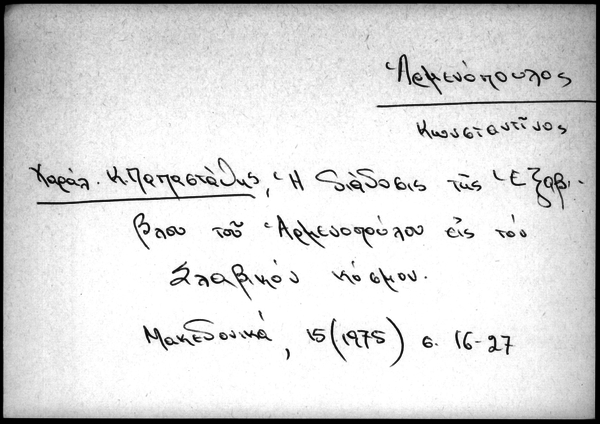 Ἁρμενόπουλος
Κωνσταντῖνος
Χαράλ. Κ. Παπαστάθης, Ἡ διάδοσις τῆς Ἑξαβί-
βλου τοῦ Ἁρμενοπούλου εἰς τόν
Σλαβικόν κόσμον.
Μακεδονικά, 15 (1975) σ. 16-27